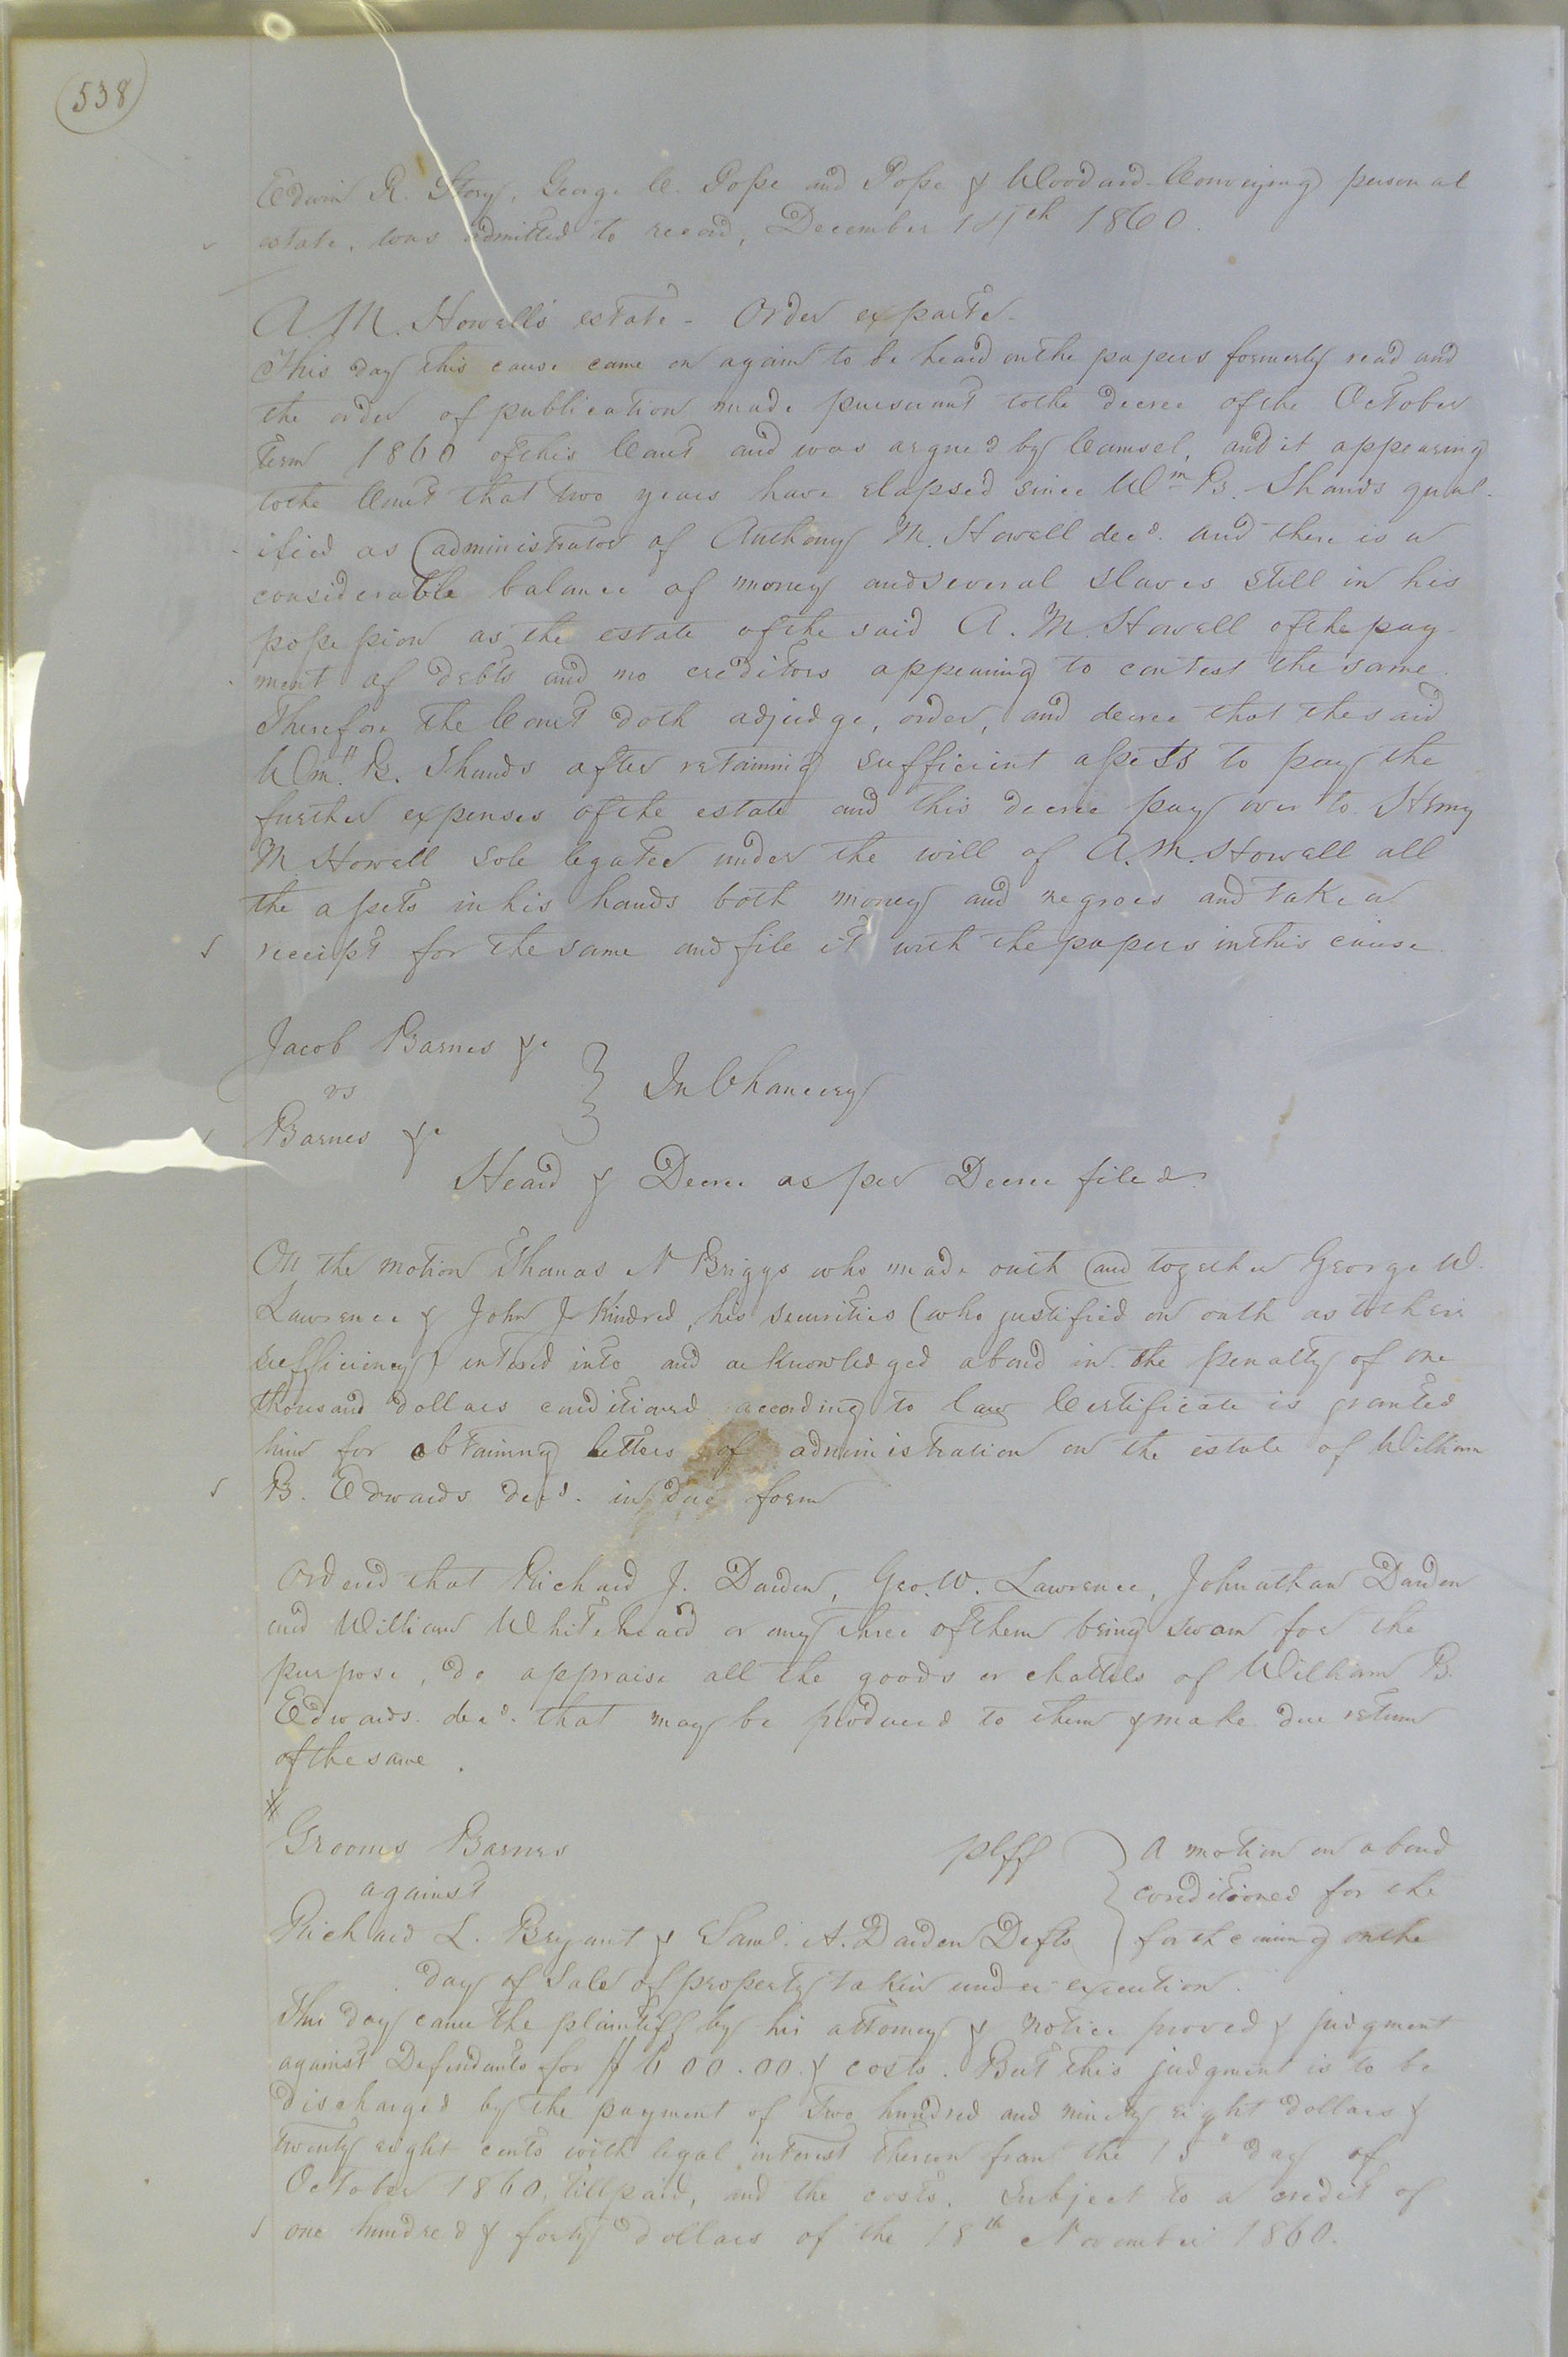 538
Edwin R. Story, George C. Pope and Pope & Woodard Conveying personal
estate, was admitted to record, December 14th 1860.
A. M. Howell's estate - Order exparte.
This day this cause came on again to be heard on the papers formerly read and
the order of publication made pursuant to the decree of the October
term 1860 of this Court and was argued by Counsel, and it appearing
to the Court that two years have elapsed since Wm B. Shands qual-
ified as administrator of Anthony M. Howell decd. and there is a
considerable balance of money and several slaves still in his
possession as the estate of the said A. M. Howell of the pay-
ment of debts and no creditors appearing to contest the same.
Therefore the Court doth adjudge, order, and decree that the said
Wm. B. Shands after retaining sufficient assets to pay the
further expenses of the estate and this decree pay over to
M. Howell sole legatee under the will of A. M. Howell all
the assets in his hands both money and negroes and take a
receipt for the same and file it with the papers in this cause
Jacob Barnes &c
vs
} In Chancery
Barnes &c
Heard & Decree as per Decree filed.
On the motion Thomas N Briggs who made oath and together George W.
Lawrence & John J Kindred, his securities (who justified on oath as to their
sufficiency) entered into and acknowledged a bond in the penalty of one
thousand dollars conditioned according to law Certificate is granted
him for obtaining letters of administration on the estate of William
B. Edwards decd. in due form
Ordered that Richard J. Darden, Geo. W. Lawrence, Johnathan Darden
and William Whitehead or any three of them being sworn for the
purpose, do appraise all the goods or chattels of William B.
Edwards. decd. that may be produced to them & make due return
of the same.
Grooms Barnes plff } A motion on a bond
against conditioned for the
Richard L. Bryant & Saml. A. Darden Defts forthcoming on the
day of Sale of property taken under execution.
This day came the plaintiff by his attorney & notice proved & judgment
against Defendants for $600.00 & costs. But this judgment is to be
discharged by the payment of Two hundred and ninety eight dollars &
twenty eight cents with legal interest thereon from the 15" day of
October 1860, till paid, and the costs. Subject to a credit of
one hundred & forty dollars of the 18th November 1860.